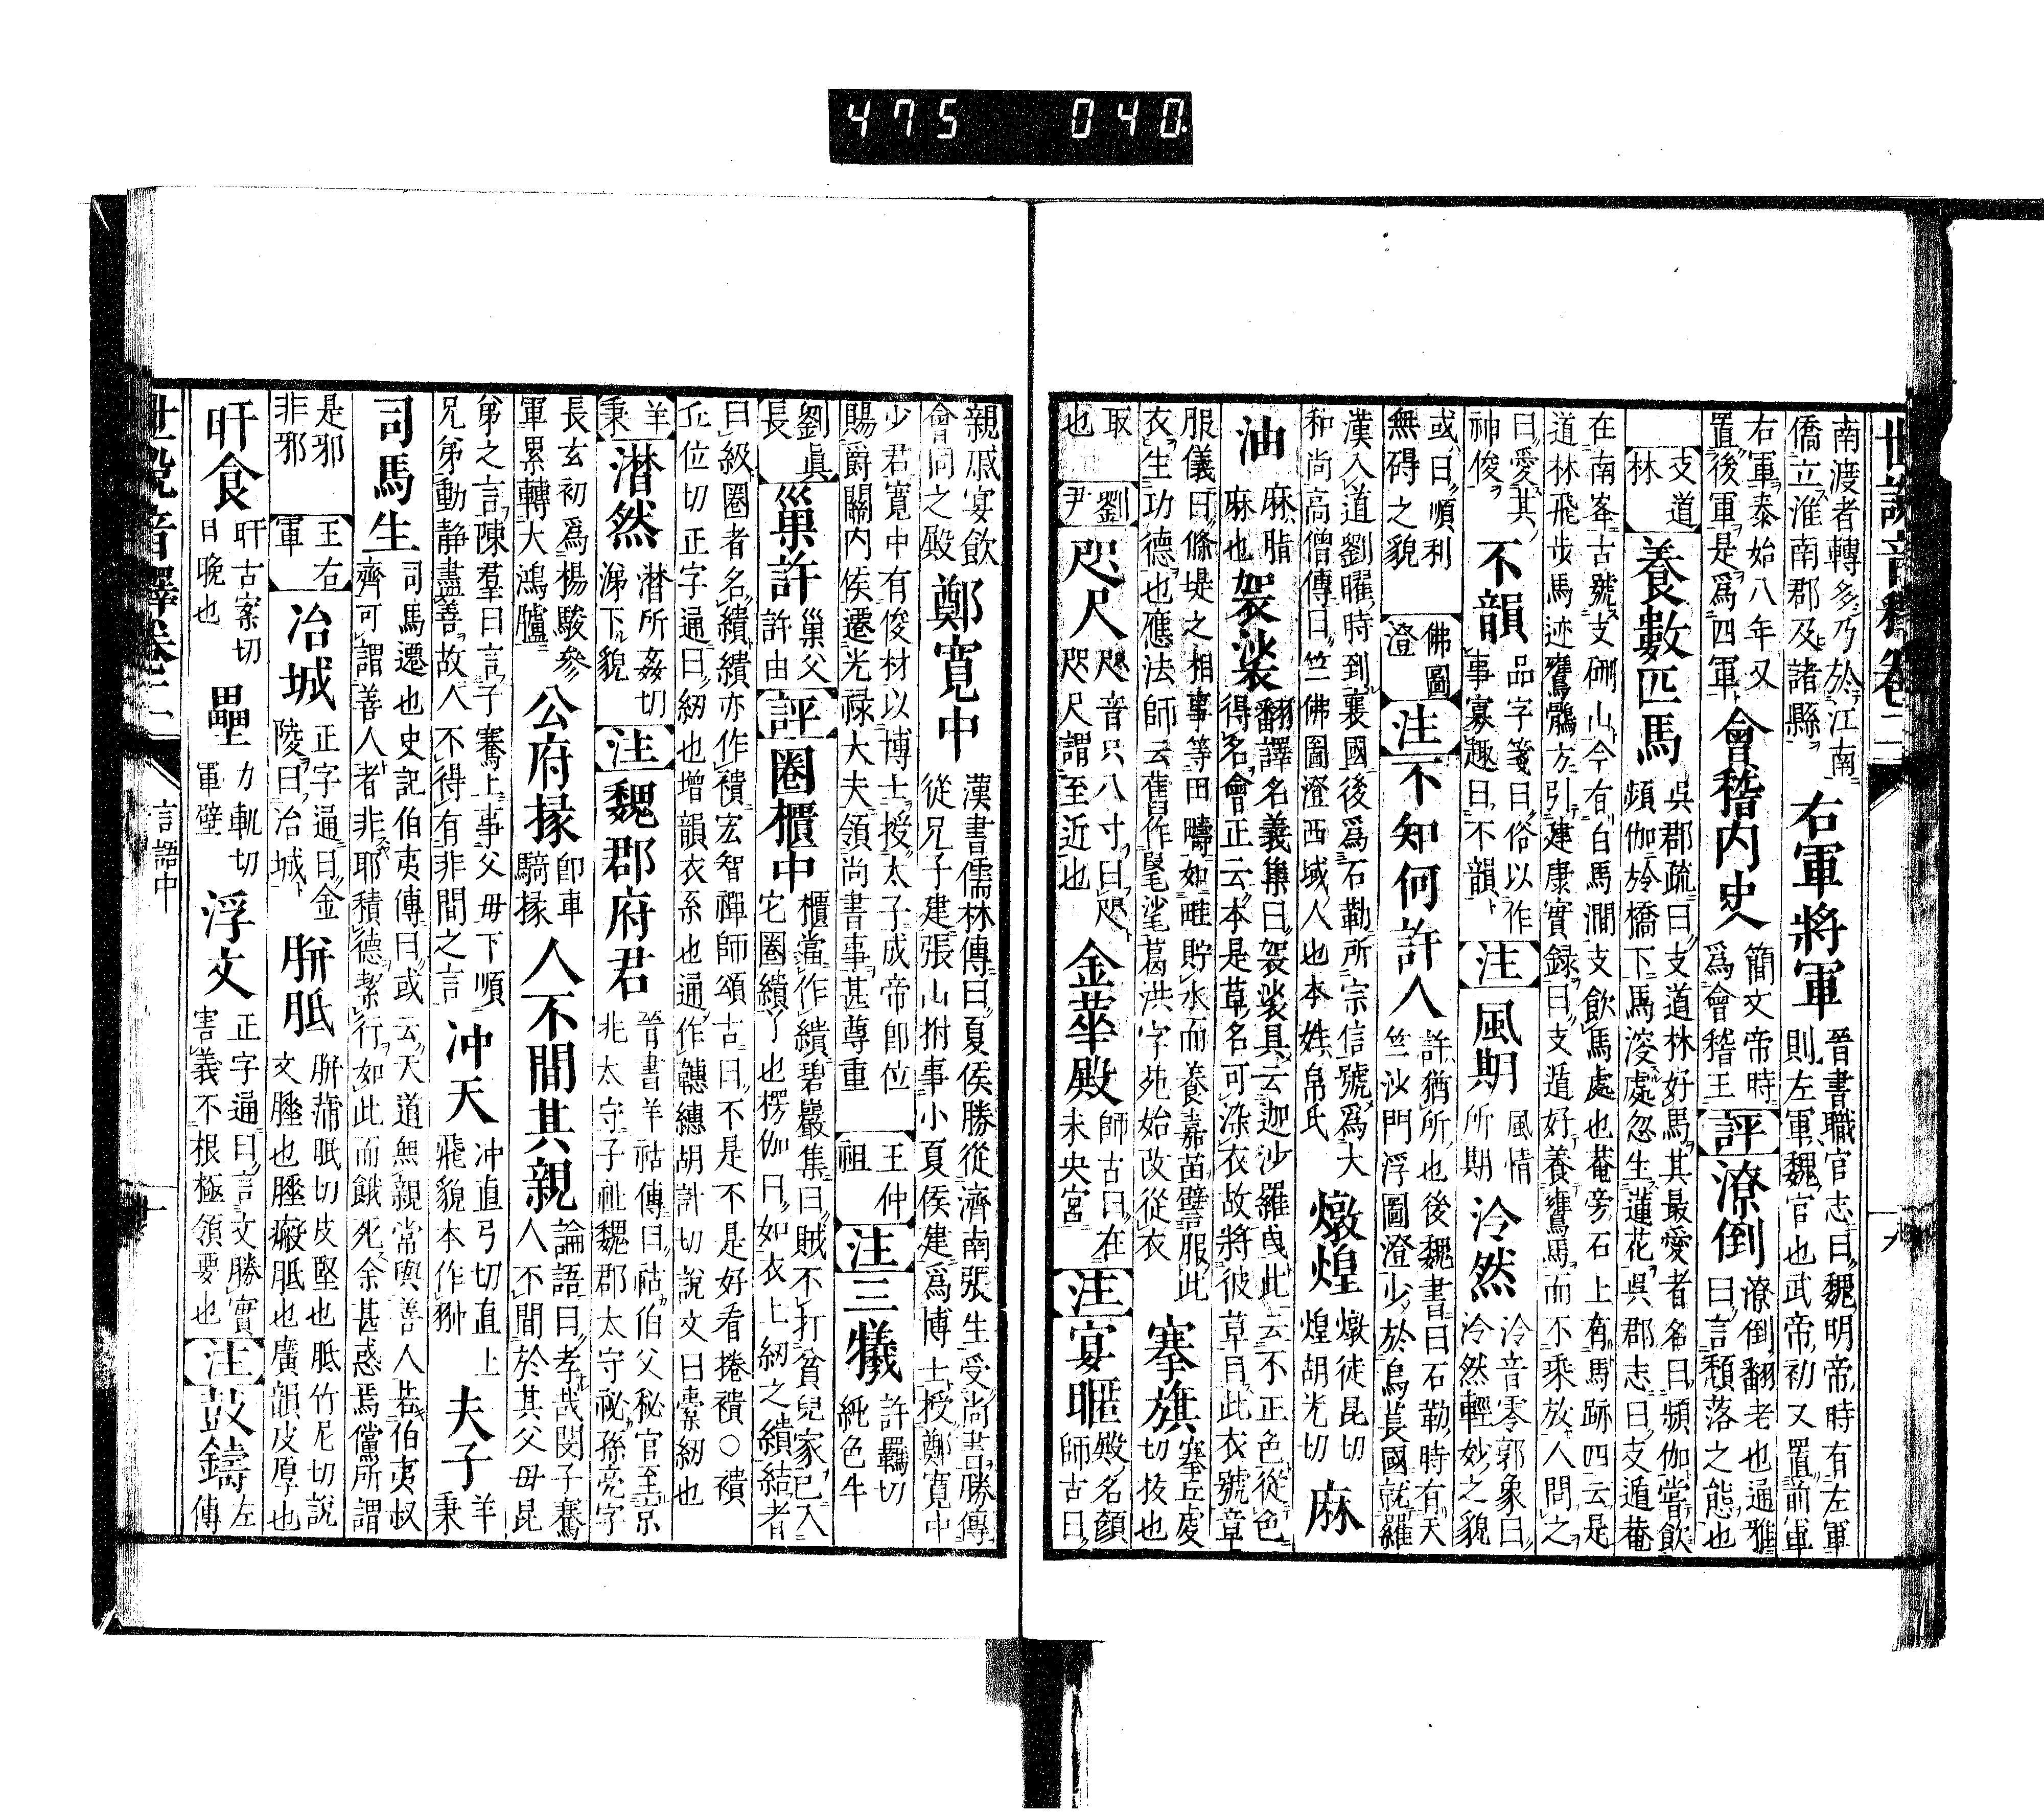 475 040
世說音釋卷二
南渡者轉多乃於江南
僑立淮南郡及諸縣
右軍將軍
晉書職官志曰魏明帝時有左軍
則左軍魏官也武帝初又置前軍
右軍泰始八年又
置後軍是爲四軍
會稽内史
簡文帝時
爲會稽王
評
潦倒
潦倒翻老也通雅
曰言頹落之態也
支道
林
養數匹馬
吳郡疏曰支道林好馬其最愛者名曰頻伽嘗飲
頻伽於橋下馬溲處忽生蓮花吳郡志曰支遁菴
在南峯古號支硎山今有白馬澗支飲馬處也菴旁石上有馬跡四云是
道林飛步馬迹鷹鶻方引建康實録曰支遁好養鷹馬而不乘放人問之
曰愛其
神俊
不韻
品字箋曰俗以作
事寡趣曰不韻
注
風期
風情
所期
泠然
泠音零郭象曰
泠然輕妙之貌
或曰順利
無碍之貌
佛圖
澄
注
不知何許人
許猶所也後魏書曰石勒時有天
竺沙門浮圖澄少於烏萇國就羅
漢入道劉曜時到襄國後爲石勒所宗信號爲大
和尚高僧傳曰竺佛圖澄西域人也本姓帛氏
燉煌
燉徒昆切
煌胡光切
麻
油
麻脂
麻也
袈裟
翻譯名義集曰袈裟具云迦沙羅曳此云不正色從色
得名會正云本是草名可染衣故將彼草目此衣號章
服儀曰條堤之相事等田疇如畦貯水而養嘉苗譬服此
衣生功德也應法師云舊作㲠㲚葛洪字苑始改從衣
搴旗
搴丘虔
切拔也
取
也
劉
尹
咫尺
咫音只八寸曰咫
咫尺謂至近也
金華殿
師古曰在
未央宮
注
宴暱
殿名顏
師古曰
親戚宴飲
會同之殿
鄭寬中
漢書儒林傳曰夏侯勝從濟南張生受尚書勝傳
從兄子建張山拊事小夏侯建爲博士授鄭寬中
少君寬中有俊材以博士授太子成帝卽位
賜爵關内侯遷光禄大夫領尚書事甚尊重
王仲
祖
注
三犧
許羈切
純色牛
劉眞
長
巢許
巢父
許由
評
圈櫃中
櫃當作繢碧巖集曰賊不打貧兒家已入
它圈繢了也楞伽曰如衣上紉之繢結者
曰級圈者名繢繢亦作䙡宏智禪師頌古曰不是不是好看捲䙡○䙡
丘位切正字通曰紉也增韻衣系也通作䡺䌖胡計切說文曰橐紉也
羊
秉
潸然
潸所姦切
涕下貌
注
魏郡府君
晉書羊祜傳曰祜伯父秘官至京
兆太守子祉魏郡太守祕孫亮字
長玄初爲楊駿參
軍累轉大鴻臚
公府掾
卽車
騎掾
人不間其親
論語曰孝哉閔子騫
人不間於其父母昆
弟之言陳羣曰言子騫上事父毋下順
兄弟動静盡善故人不得有非間之言
冲天
冲直弓切直上
飛貌本作翀
夫子
羊
秉
司馬生
司馬遷也史記伯夷傳曰或云天道無親常與善人若伯夷叔
齊可謂善人者非耶積德潔行如此而餓死余甚惑焉儻所謂
是邪
非邪
王右
軍
冶城
正字通曰金
陵曰冶城
胼胝
胼蒲眠切皮堅也胝竹尼切說
文腄也腄瘢胝也廣韻皮厚也
旰食
旰古案切
日晚也
壘
力軌切
軍壁
浮文
正字通曰言文勝實
害義不根極領要也
注
鼓鑄
左
傳
世說音釋卷二
言語中